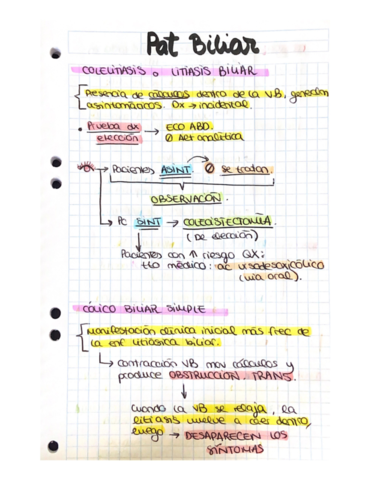 Pat Biliar
COLELITIASIS o LITIASIS BILIAR
Presencia de cálculos dentro de la VB, generalm
assintomáticos. Dx → incidental.
• Prueba dx → ECO ABD.
elección Ø Alt analítica
→ Pacientes ASINT Ø se tratan.
OBSERVACÓN.
→ Pc SINT → COLECISTECTOMÍA
(De elección)
Pacientes con ↑ riesgo QX:
tto médico: ac ursadesoxicólico
(via oral).
CÓLICO BILIAR SIMPLE
Manifestación clínica inicial más frec de
la enf litiásica biliar.
→ contracción VB mov cálculos y
produce OBSTRUCCION TRANS.
↓
Cuando la VB se relaja, la
litiasis vuelve a caer dentro,
luego → DESAPARECEN LOS
SÍNTOMAS